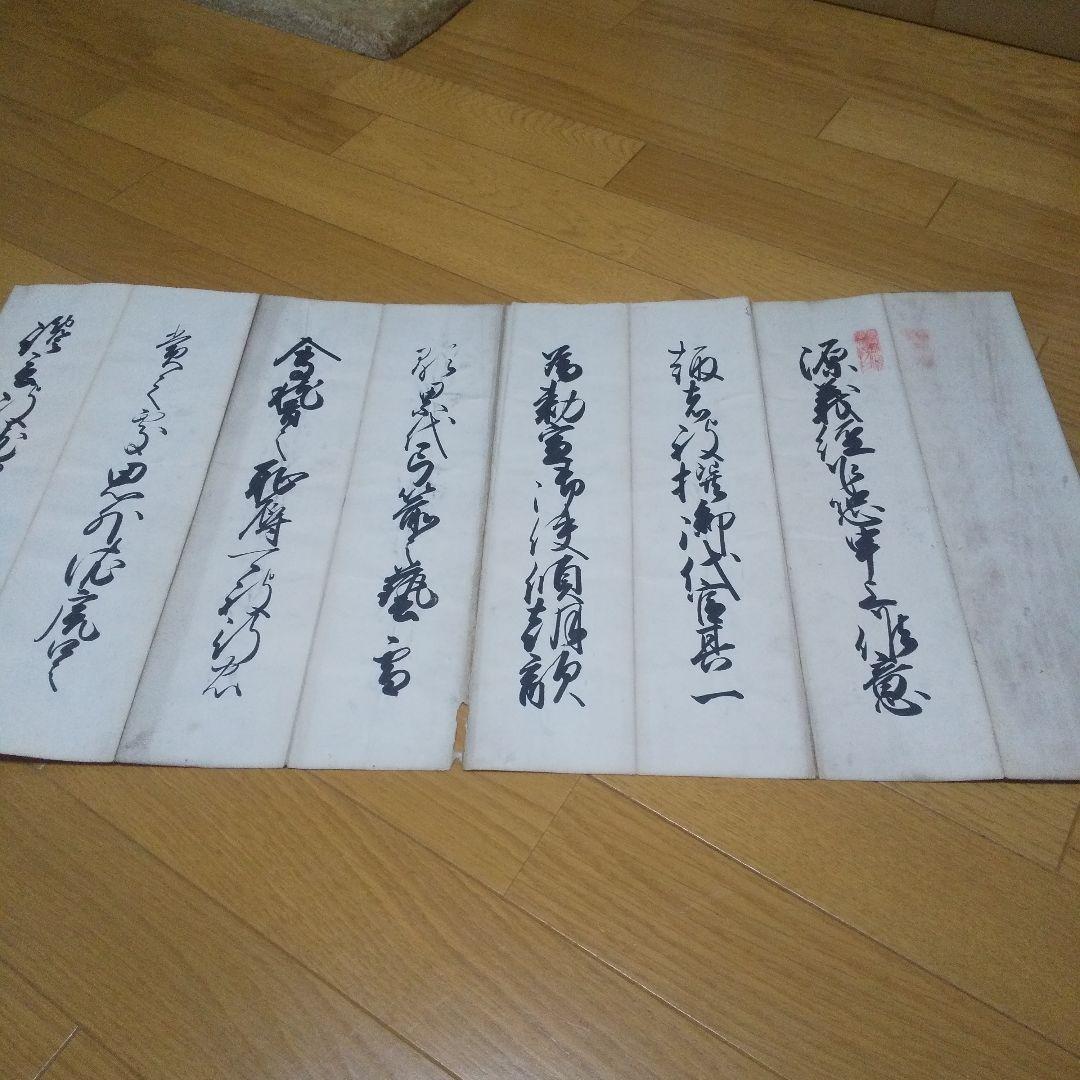 源義経乍恐申上候意
趣者被撰御代官其一
為勅宣御使傾朝敵
顕累代弓箭之藝雪
會稽之恥辱可被行
賞之處思外依虎口之
讒言